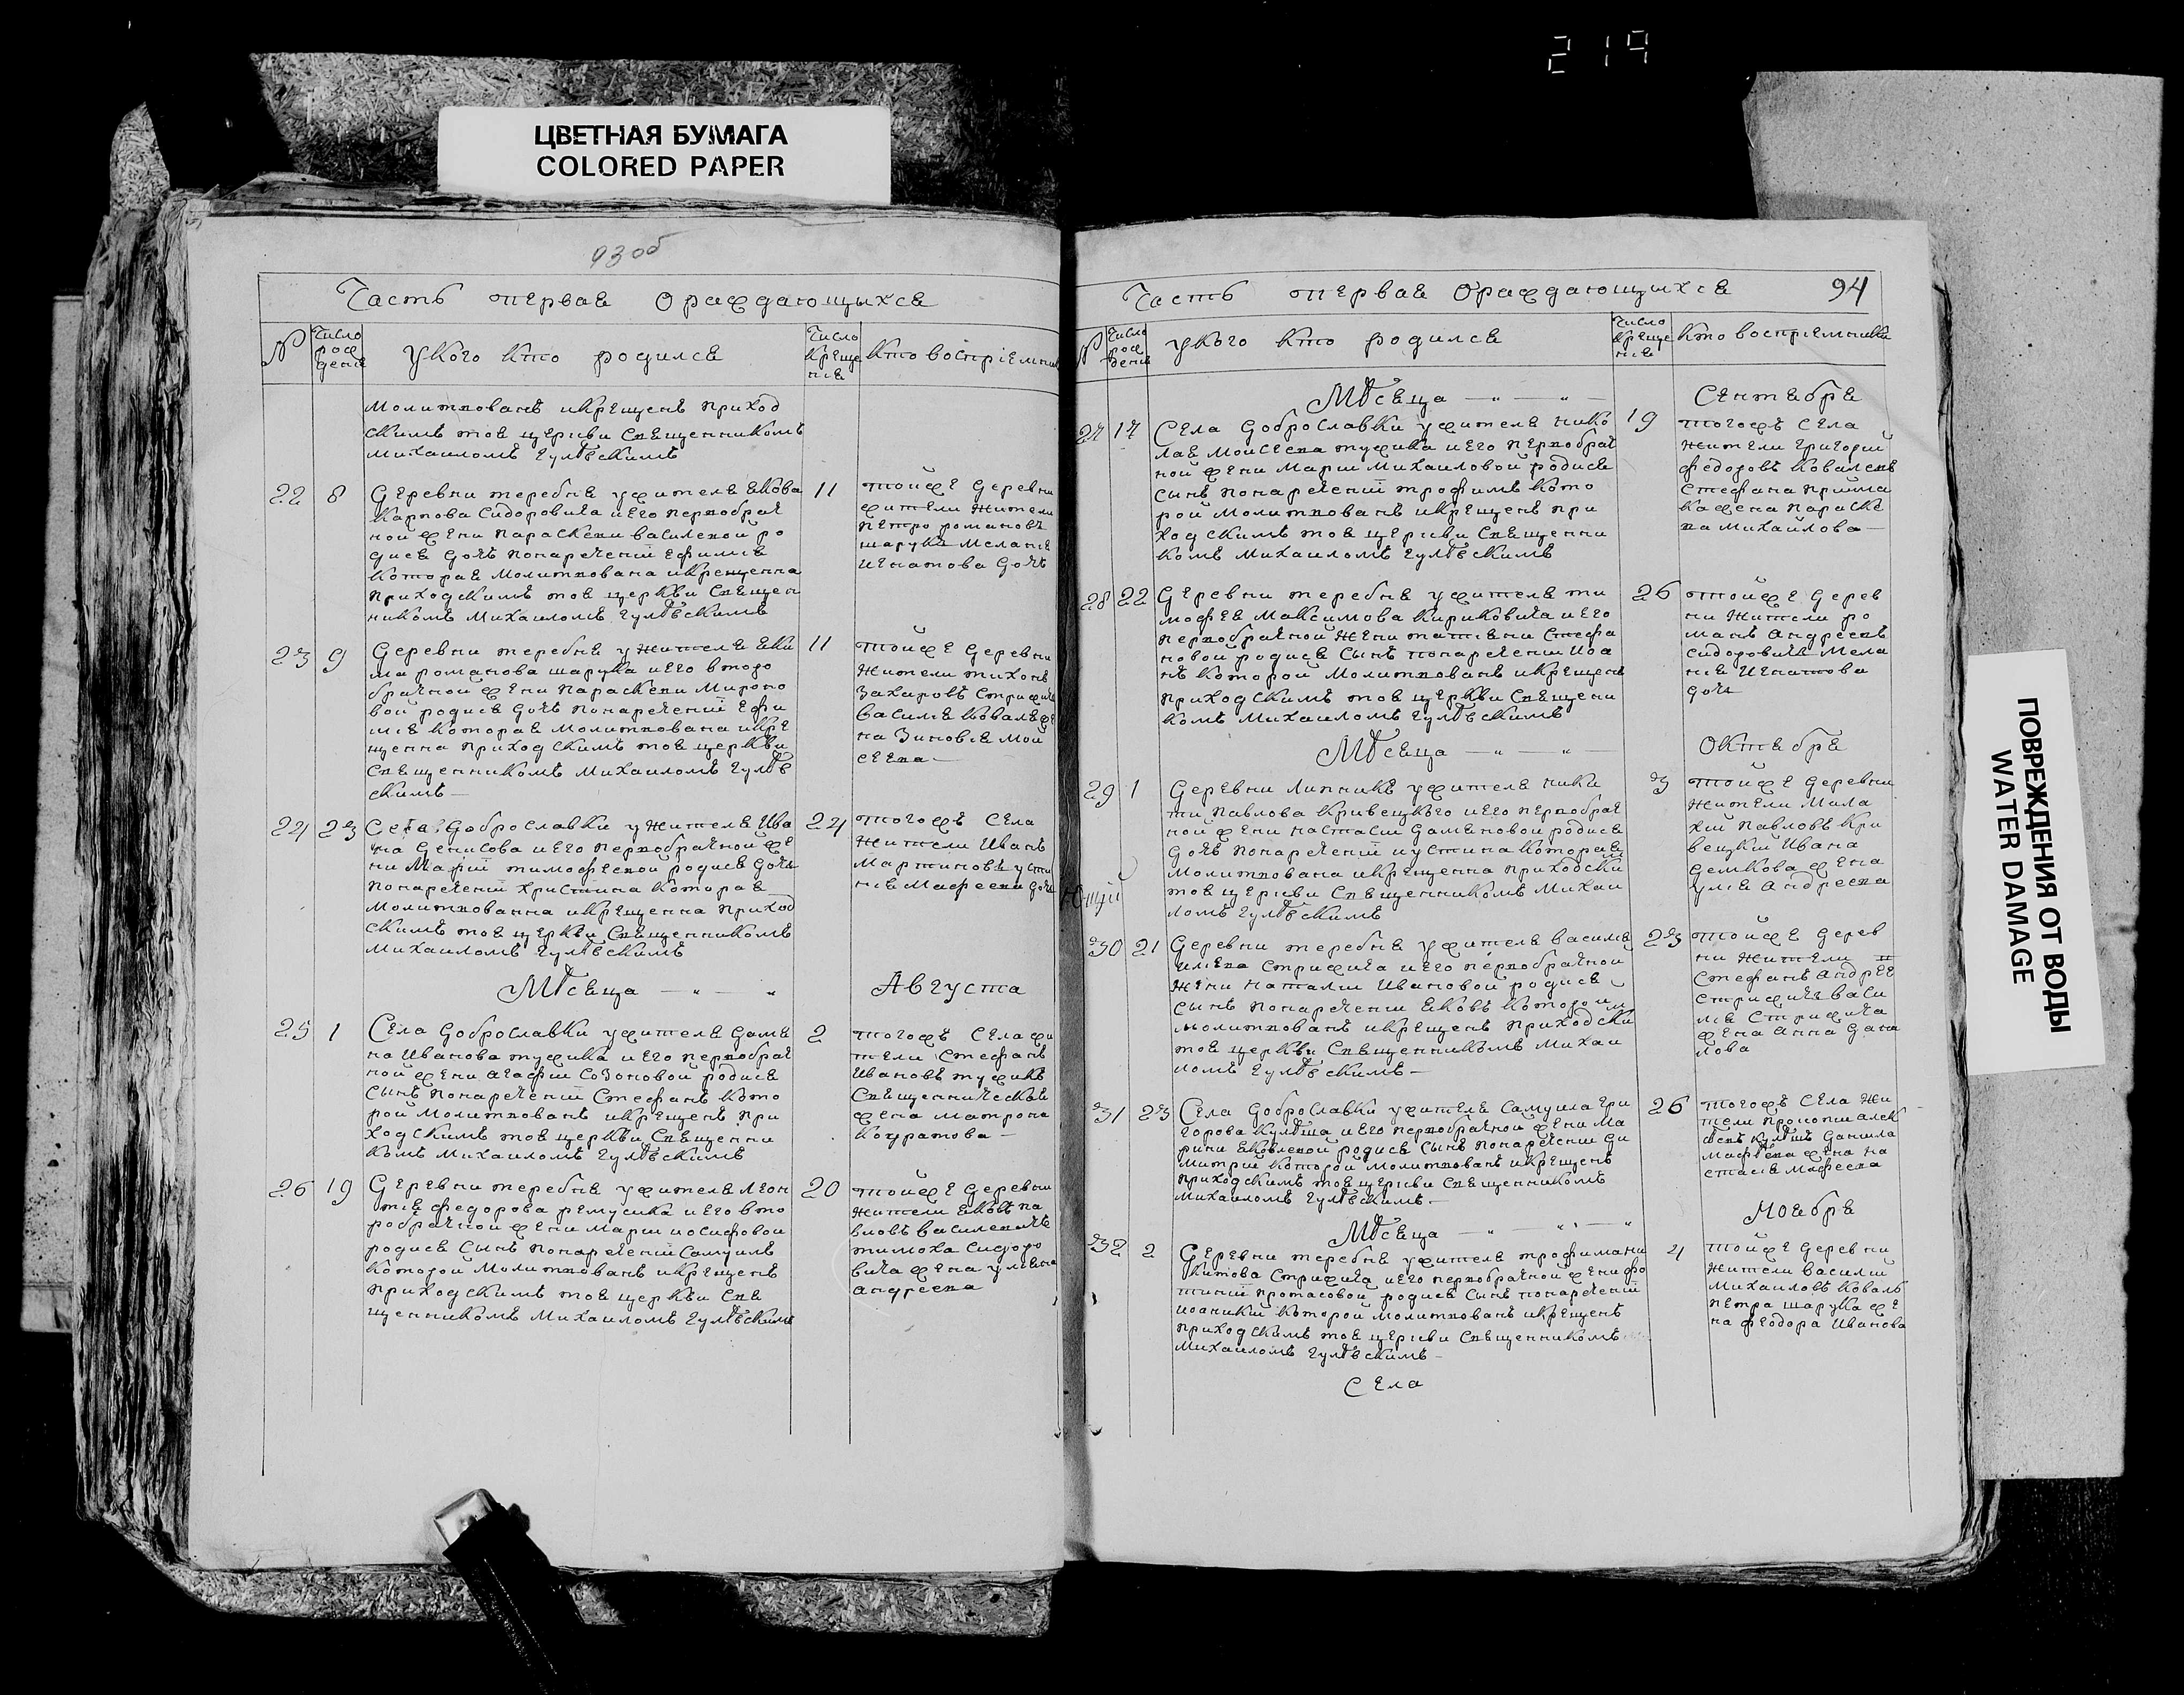 219
ЦВЕТНАЯ БУМАГА
COLORED PAPER
93 об
Часть первая о раждающыхся
№
Число рождения
у кого кто родился
Число крещения
кто восприемники
молитвованъ и крещенъ приход
скимъ тоя церкви священникомъ
михаиломъ гулѣвскимъ
22
8
Деревни теребня у жителя якова
карпова сидоровича и его первобрач
ной жени параскеви василевой ро
дися дочь понаречений ефимия
которая молитвована и крещенна
приходскимъ тоя церкви священ
никомъ михаиломъ гулѣвскимъ
11
тойже деревни
жители
петро романовъ
шарука мелания
игнатова дочь
23
9
Деревни теребня у жителя яки
ма романова шарука и его второ
брачной жени параскеви мироно
вой родися дочь понаречений ефи
мия которая молитвована и кре
щенна приходскимъ тоя церкви
священникомъ михаиломъ гулѣв
скимъ
11
тойже деревни
жители тихонъ
захаровъ стрижичъ
василя коваля же
на зиновия мой
сеева
24
23
Села Доброславки у жителя ива
на денисова и его первобрачной же
ни марии тимофеевой родися дочь
понаречений христина которая
молитвованна и крещенна приход
скимъ тоя церкви священникомъ
михаиломъ гулѣвскимъ
24
тогожъ села
жители иванъ
мартиновъ усти
ния мафеева дочь
Мѣсяца
Августа
25
1
Села Доброславки у жителя дамя
на иванова тужика и его первобрач
ной жени агафии созоновой родися
сынъ понаречений стефанъ кото
рой молитвованъ и крещенъ при
ходскимъ тоя церкви священни
комъ михаиломъ гулѣвскимъ
2
тогожъ села жи
тели стефанъ
ивановъ тужикъ
священническая
жена матрона
кондратова
26
19
Деревни теребня у жителя леон
тия федорова ремусика и его вто
робрачной жени марии иосифовой
родися сынъ понаречений самуилъ
которой молитвованъ и крещенъ
приходскимъ тоя церкви свя
щенникомъ михаиломъ гулѣвскимъ
20
тойже деревни
жители яковъ па
вловъ василевичъ
тимоха сидоро
вича жена улияна
андреева
Часть первая о раждающыхся
94
№
Число рождения
у кого кто родился
Число крещения
кто восприемники
Мѣсяца
Сентября
27
17
Села доброславки у жителя нико
лая моисеева тужика и его первобрач
ной жени марии михаиловой родися
сынъ понаречений трофимъ кото
рой молитвованъ и крещенъ при
ходскимъ тоя церкви священни
комъ михаиломъ гулѣвскимъ
19
тогожъ села
жители григорий
федоровъ
стефана прийма
ка жена параске
ва михайлова
28
22
Деревни теребня у жителя ти
мофея максимова кириковича и его
первобрачной жени татияни стефа
новой родися сынъ понаречений иоа
нъ которой молитвованъ и крещенъ
приходскимъ тоя церкви священи
комъ михаиломъ гулѣвскимъ
26
тойже дерев
ни жители ро
манъ андреевъ
сидоровичъ мела
ния игнатова
дочь
Мѣсяца
Октября
29
1
Деревни липникъ у жителя ники
ти павлова кривецкого и его первобрач
ной жени настасии дамяновой родися
дочь понаречений иустина которая
молитвована и крещенна приходским
тоя церкви священникомъ михаи
ломъ гулѣвскимъ
3
тойже деревни
жители мала
хий павловъ кри
вецкий ивана
демкова жена
улия андреева
30
21
Деревни теребня у жителя василия
илиева стрижича и его первобрачной
жени наталии ивановой родися
сынъ понаречений яковъ которой
молитвованъ и крещенъ приходским
тоя церкви священникомъ михаи
ломъ гулѣвскимъ
23
тойже дерев
ни жители
стефанъ андрее
стрижичъ васи
лия стрижича
жена анна дани
лова
31
23
Села доброславки у жителя самуила гри
горова кулѣша и его первобрачной жени ма
рини яковлевой родися сынъ понаречений ди
митрий которой молитвованъ и крещенъ
приходскимъ тоя церкви священникомъ
михаиломъ гулѣвскимъ
26
тогожъ села жи
тели прокопий алек
сѣевъ кулѣшъ данила
мафѣева жена на
стасия мафеева
Мѣсяца
Ноября
32
2
Деревни теребня у жителя трофима ни
китова стрижича и его первобрачной жени фо
тинии протасовой родися сынъ понаречений
иоаникий которой молитвованъ и крещенъ
приходскимъ тоя церкви священникомъ
михаиломъ гулѣвскимъ
4
тойже деревни
жители василий
михаиловъ коваль
петра шарука же
на феодора иванова
Села
ПОВРЕЖДЕНИЯ ОТ ВОДЫ
WATER DAMAGE